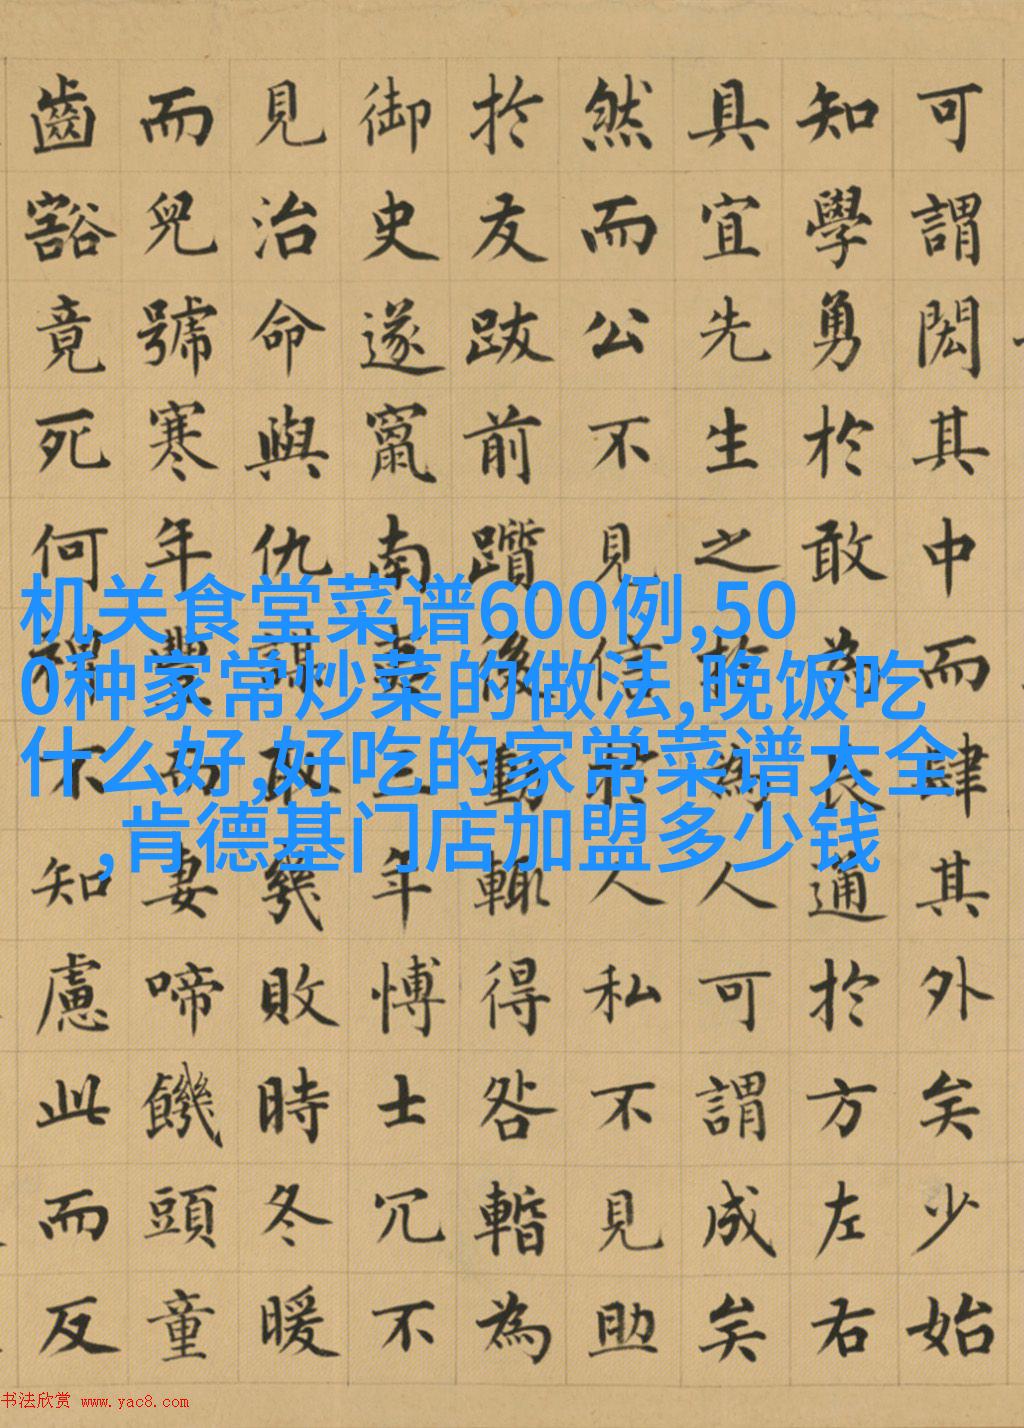 可謂閎其中而肆其外矣少始
知學勇於敢為長通於方左右
具宜先生之於為人可謂成矣
然而公不見信於人私不見助
於友跋前躓後動輒得咎暫為
御史遂竄南夷三年愽士冗不
見治命與仇謀取幾敗時冬暖
而兒號寒年豐而妻啼饑頭童
齒豁竟死何裨不知慮此而反
机关食堂菜谱600例,50
0种家常炒菜的做法,晚饭吃
什么好,好吃的家常菜谱大全
,肯德基门店加盟多少钱
书法欣赏 www.yac8.com